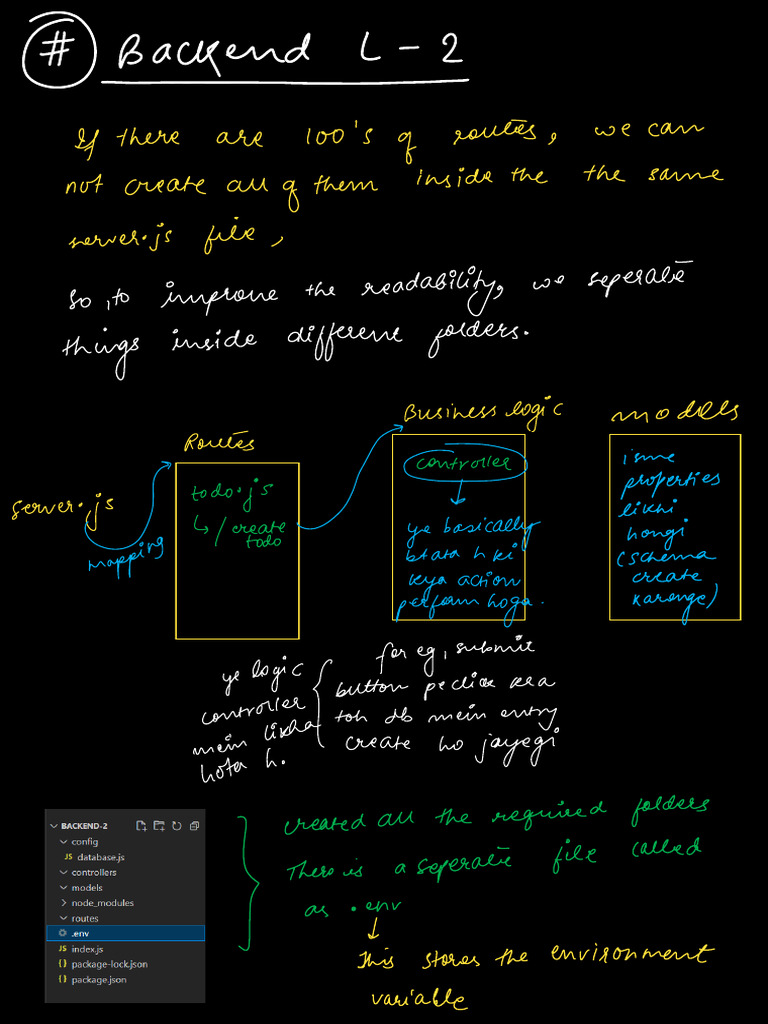 # Backend L-2
If there are 100's of routes, we can
not create all of them inside the the same
server.js file,
So, to improve the readability, we seperate
things inside different folders.
Routes
Business logic
models
server.js
mapping
todo.js
↳ /create
todo
controller
↓
ye basically
btata h ki
kya action
perform hoga.
isme
properties
likhi
hongi
(schema
create
karenge)
ye logic
controller
mein likha
hota h.
for eg, submit
button pe click kra
toh db mein entry
create ho jayegi
BACKEND-2
config
JS database.js
controllers
models
node_modules
routes
.env
JS index.js
{} package-lock.json
{} package.json
created all the required folders
There is a seperate file called
as .env
↓
This stores the environment
variable